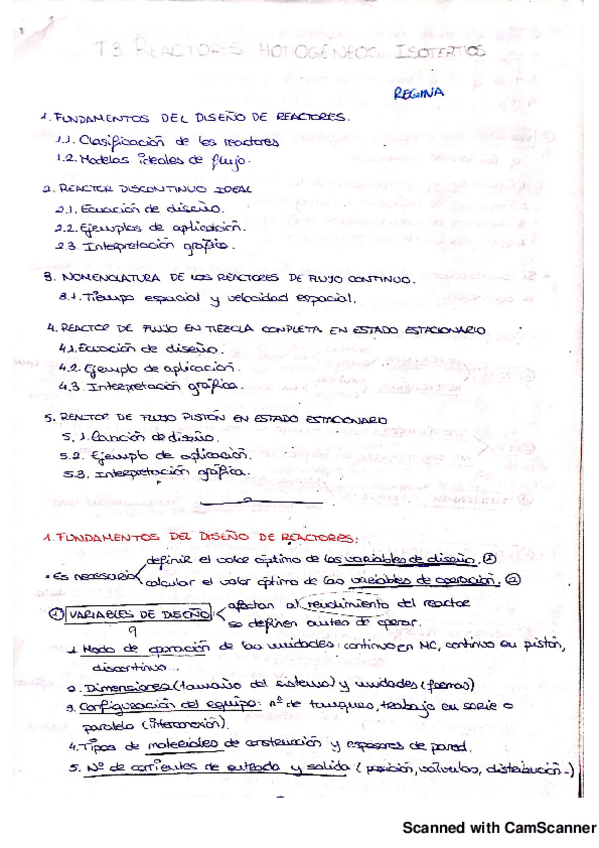 T3 REACTORES HOMOGÉNEOS ISOTERMOS
REGINA
1. FUNDAMENTOS DEL DISEÑO DE REACTORES.
1.1. Clasificación de los reactores
1.2. Modelos ideales de flujo.
2. REACTOR DISCONTINUO IDEAL
2.1. Ecuación de diseño.
2.2. Ejemplos de aplicación.
2.3. Interpretación gráfica.
3. NOMENCLATURA DE LOS REACTORES DE FLUJO CONTINUO.
3.1. Tiempo espacial y velocidad espacial.
4. REACTOR DE FLUJO EN MEZCLA COMPLETA EN ESTADO ESTACIONARIO
4.1. Ecuación de diseño.
4.2. Ejemplo de aplicación.
4.3. Interpretación gráfica.
5. REACTOR DE FLUJO PISTÓN EN ESTADO ESTACIONARIO
5.1. Ecuación de diseño.
5.2. Ejemplo de aplicación.
5.3. Interpretación gráfica.
1. FUNDAMENTOS DEL DISEÑO DE REACTORES:
definir el valor óptimo de las variables de diseño. ①
• Es necesario
calcular el valor óptimo de las variables de operación. ②
afectan al rendimiento del reactor
① VARIABLES DE DISEÑO
se definen antes de operar.
1. Modo de operación de las unidades: continuo en MC, continuo en pistón,
discontinuo...
2. Dimensiones (tamaño del sistema) y unidades (formas)
3. Configuración del equipo: nº de tanques, trabajo en serie o
paralelo (interconexión).
4. Tipos de materiales de construcción y espesores de pared.
5. Nº de corrientes de entrada y salida (posición, válvulas, distribución..)
Scanned with CamScanner